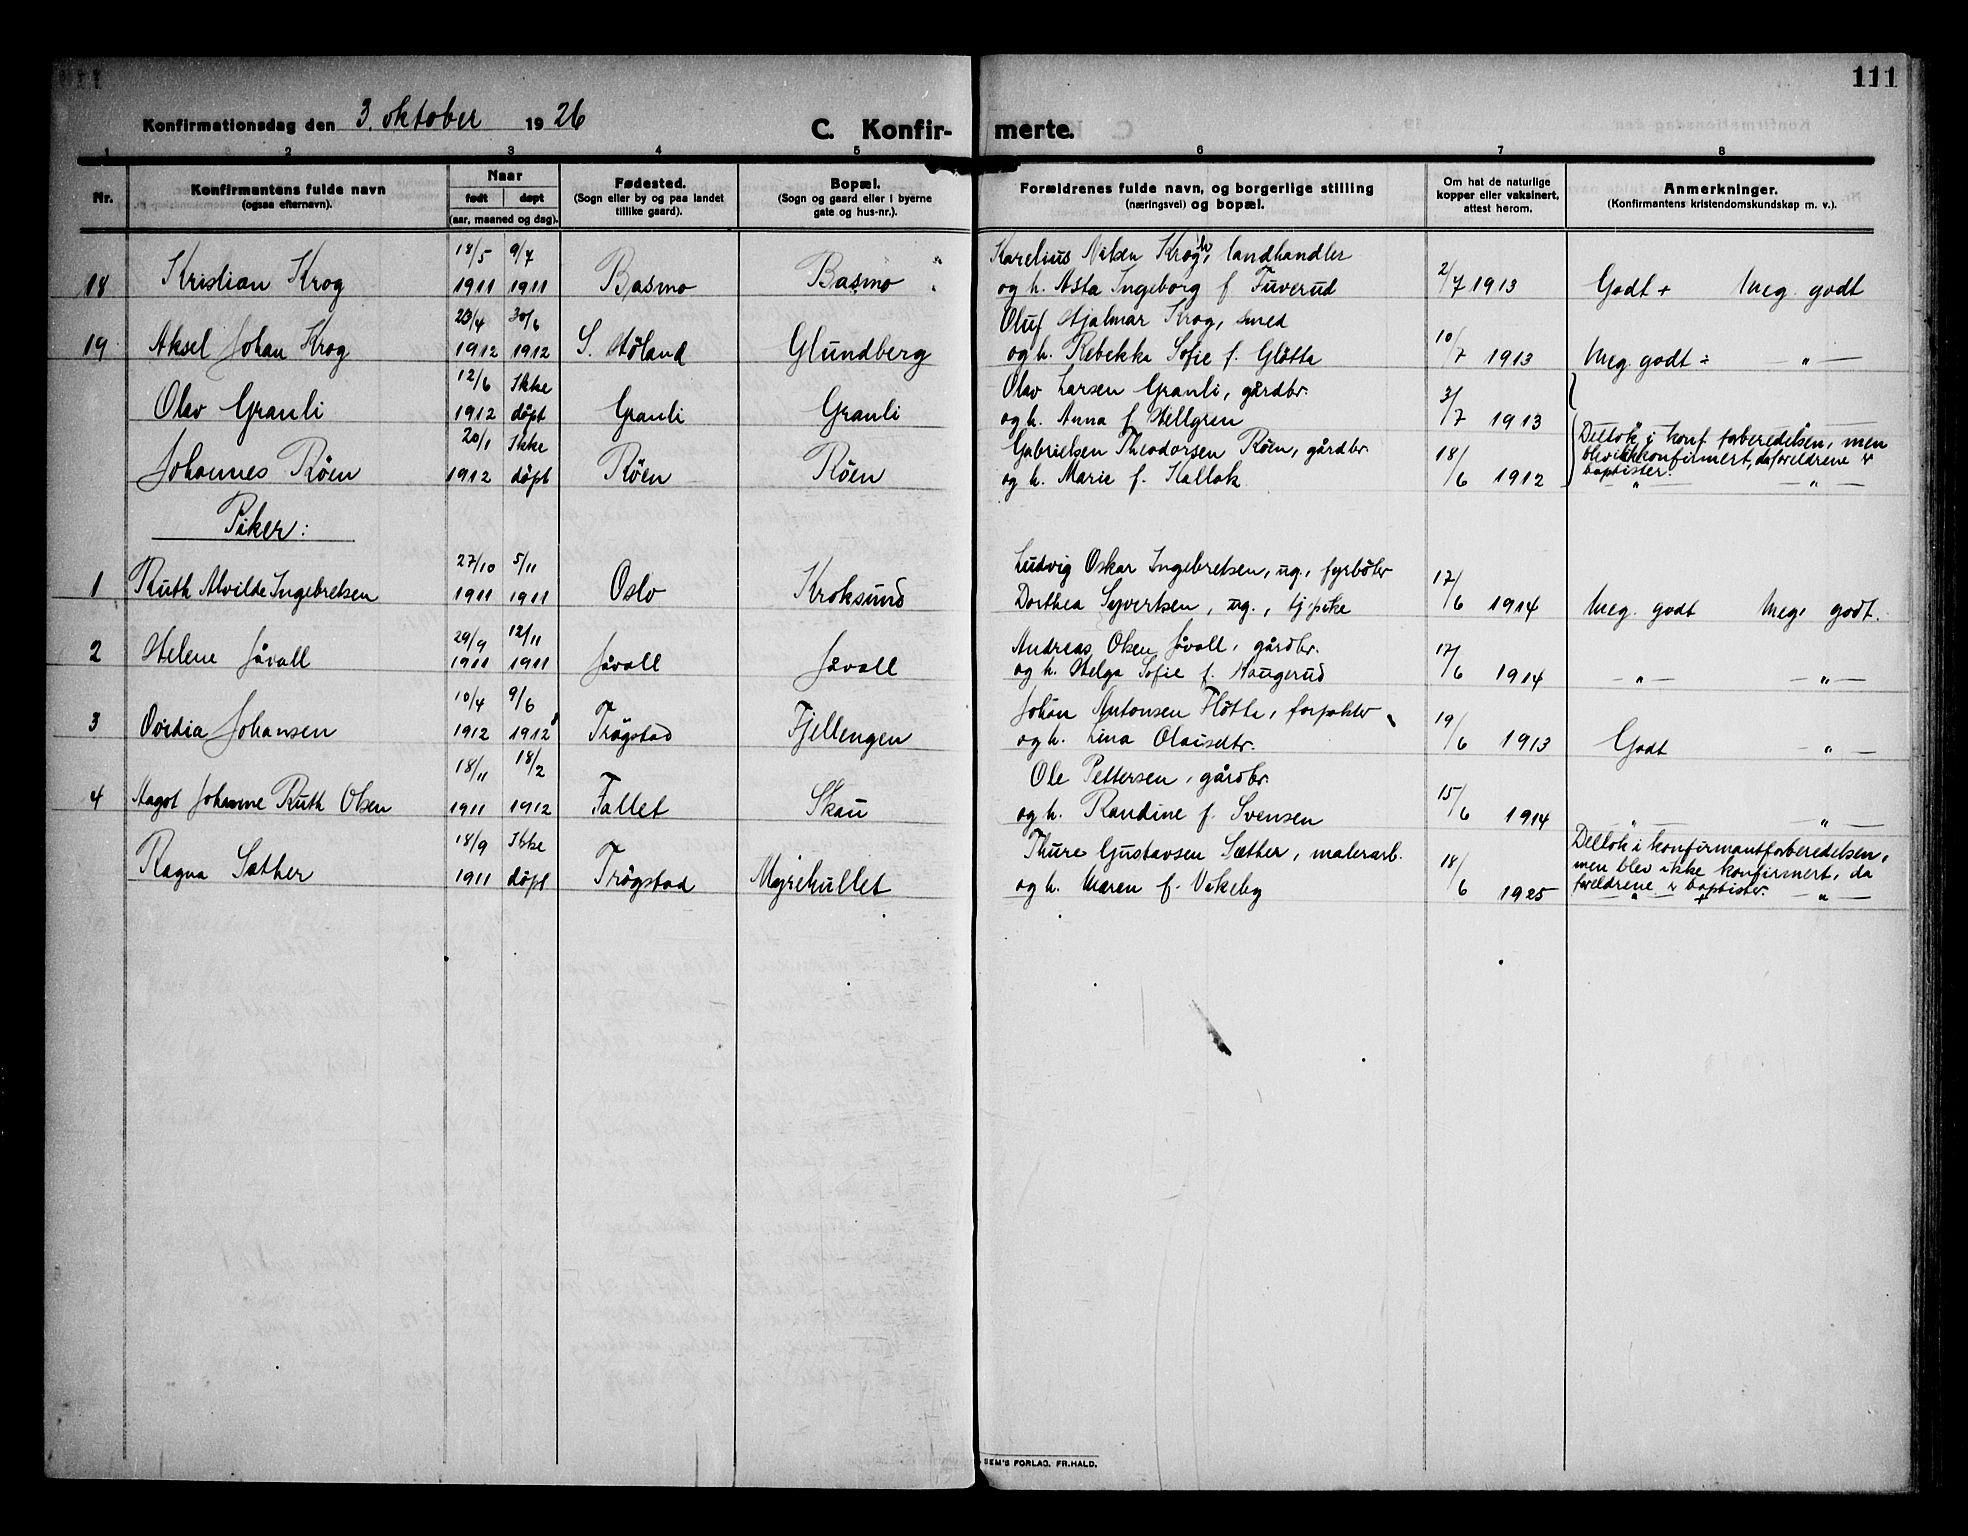 111
Konfirmationsdag den 3. oktober 1926
C. Konfir- merte.
1 2 3 4 5 6 7 8
Nr.
Konfirmantens fulde navn
(ogsaa efternavn).
Naar
født døpt
(aar, maaned og dag).
Fødested.
(Sogn eller by og paa landet
tillike gaard).
Bopæl.
(Sogn og gaard eller i byerne
gate og hus-nr.).
Forældrenes fulde navn, og borgerlige stilling
(næringsvei) og bopæl.
Om hat de naturlige
kopper eller vaksinert,
attest herom.
Anmerkninger.
(Konfirmantens kristendomskundskap m. v.).
18/5 9/7 Karelius Nilsen Krogh, landhandler
18 Kristian Krog 1911 1911 Basmo Basmo og h. Asta Ingeborg f. Tuverud 2/7 1913 Godt + Meg. godt
23/4 30/6 Oluf Hjalmar Krog, smed
19 Aksel Johan Krog 1912 1912 S. Høland Glundberg og h. Rebekka Sofie f. Gløtta 10/7 1913 Meg. godt ÷ — " —
12/6 Ikke Olav Larsen Granli, gårdbr.
Olav Granli 1912 døpt Granli Granli og h. Anna f. Hellgren 3/7 1913
20/1 Ikke Gabrielsen Theodorsen Røen, gårdbr. Deltok i konf forberedelsen, men
blev ikke konfirmert, da foreldrene er
Johannes Røen 1912 døpt Røen Røen og h. Marie f. Kallak 18/6 1912 baptister. — " — — " —
Piker:
27/10 5/11 Ludvig Oskar Ingebretsen, ug., fyrbøter
1 Ruth Alvilde Ingebretsen 1911 1911 Oslo Kroksund Dorthea Syvertsen, ug., tj.pike 17/6 1914 Meg. godt Meg. godt.
29/9 12/11 Andreas Olsen Jåvall, gårdbr.
2 Helene Jåvall 1911 1911 Jåvall Jåvall og h. Helga Sofie f. Haugerud 17/6 1914 — " — — " —
10/4 9/6 Johan Antonsen Fløtta, forpakter
3 Ovidia Johansen 1912 1912 Trøgstad Fjellengen og h. Lina Olaisdtr. 19/6 1913 Godt — " —
18/11 18/2 Ole Pettersen, gårdbr.
4 Aagot Johanne Ruth Olsen 1911 1912 Fallet Skau og h. Randine f. Svensen 15/6 1914 — " — — " —
18/9 Ikke Thure Gustavsen Sæther, malerarb. Deltok i konfirmantforberedelsen,
men blev ikke konfirmert, da
Ragna Sæther 1911 døpt Trøgstad Myrehullet og h. Maren f. Vikeby 18/6 1925 foreldrene er baptister. — " — — " —
SEM'S FORLAG, FR.HALD.